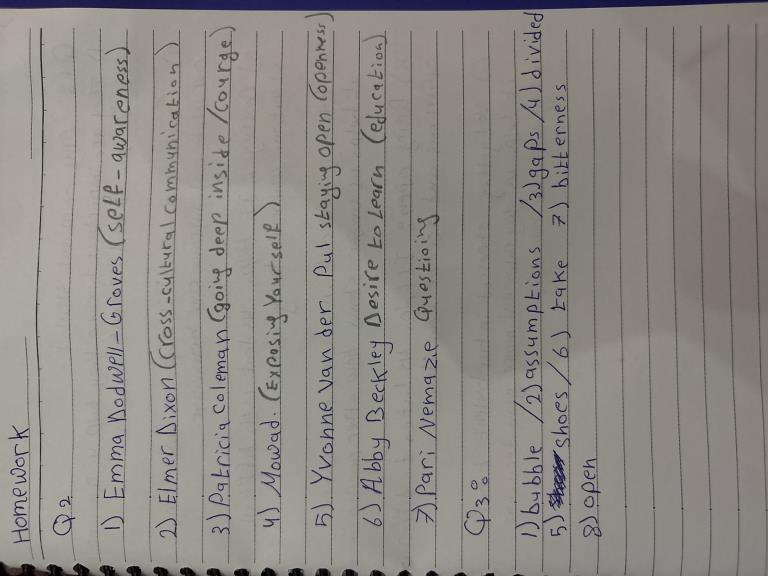 Homework
Q2
1) Emma Dodwell-Groves (self-awareness)
2) Elmer Dixon (Cross-cultural communication)
3) Patricia Coleman (going deep inside/courge)
4) Mowad. (Exposing Yourself)
5) Yvonne Van der Pul staying open (openness)
6) Abby Beckley Desire to Learn (education)
7) Pari Nemazie Questioing
Q3:
1) bubble / 2) assumptions / 3) gaps / 4) divided
5) shoes / 6) take 7) bitterness
8) open